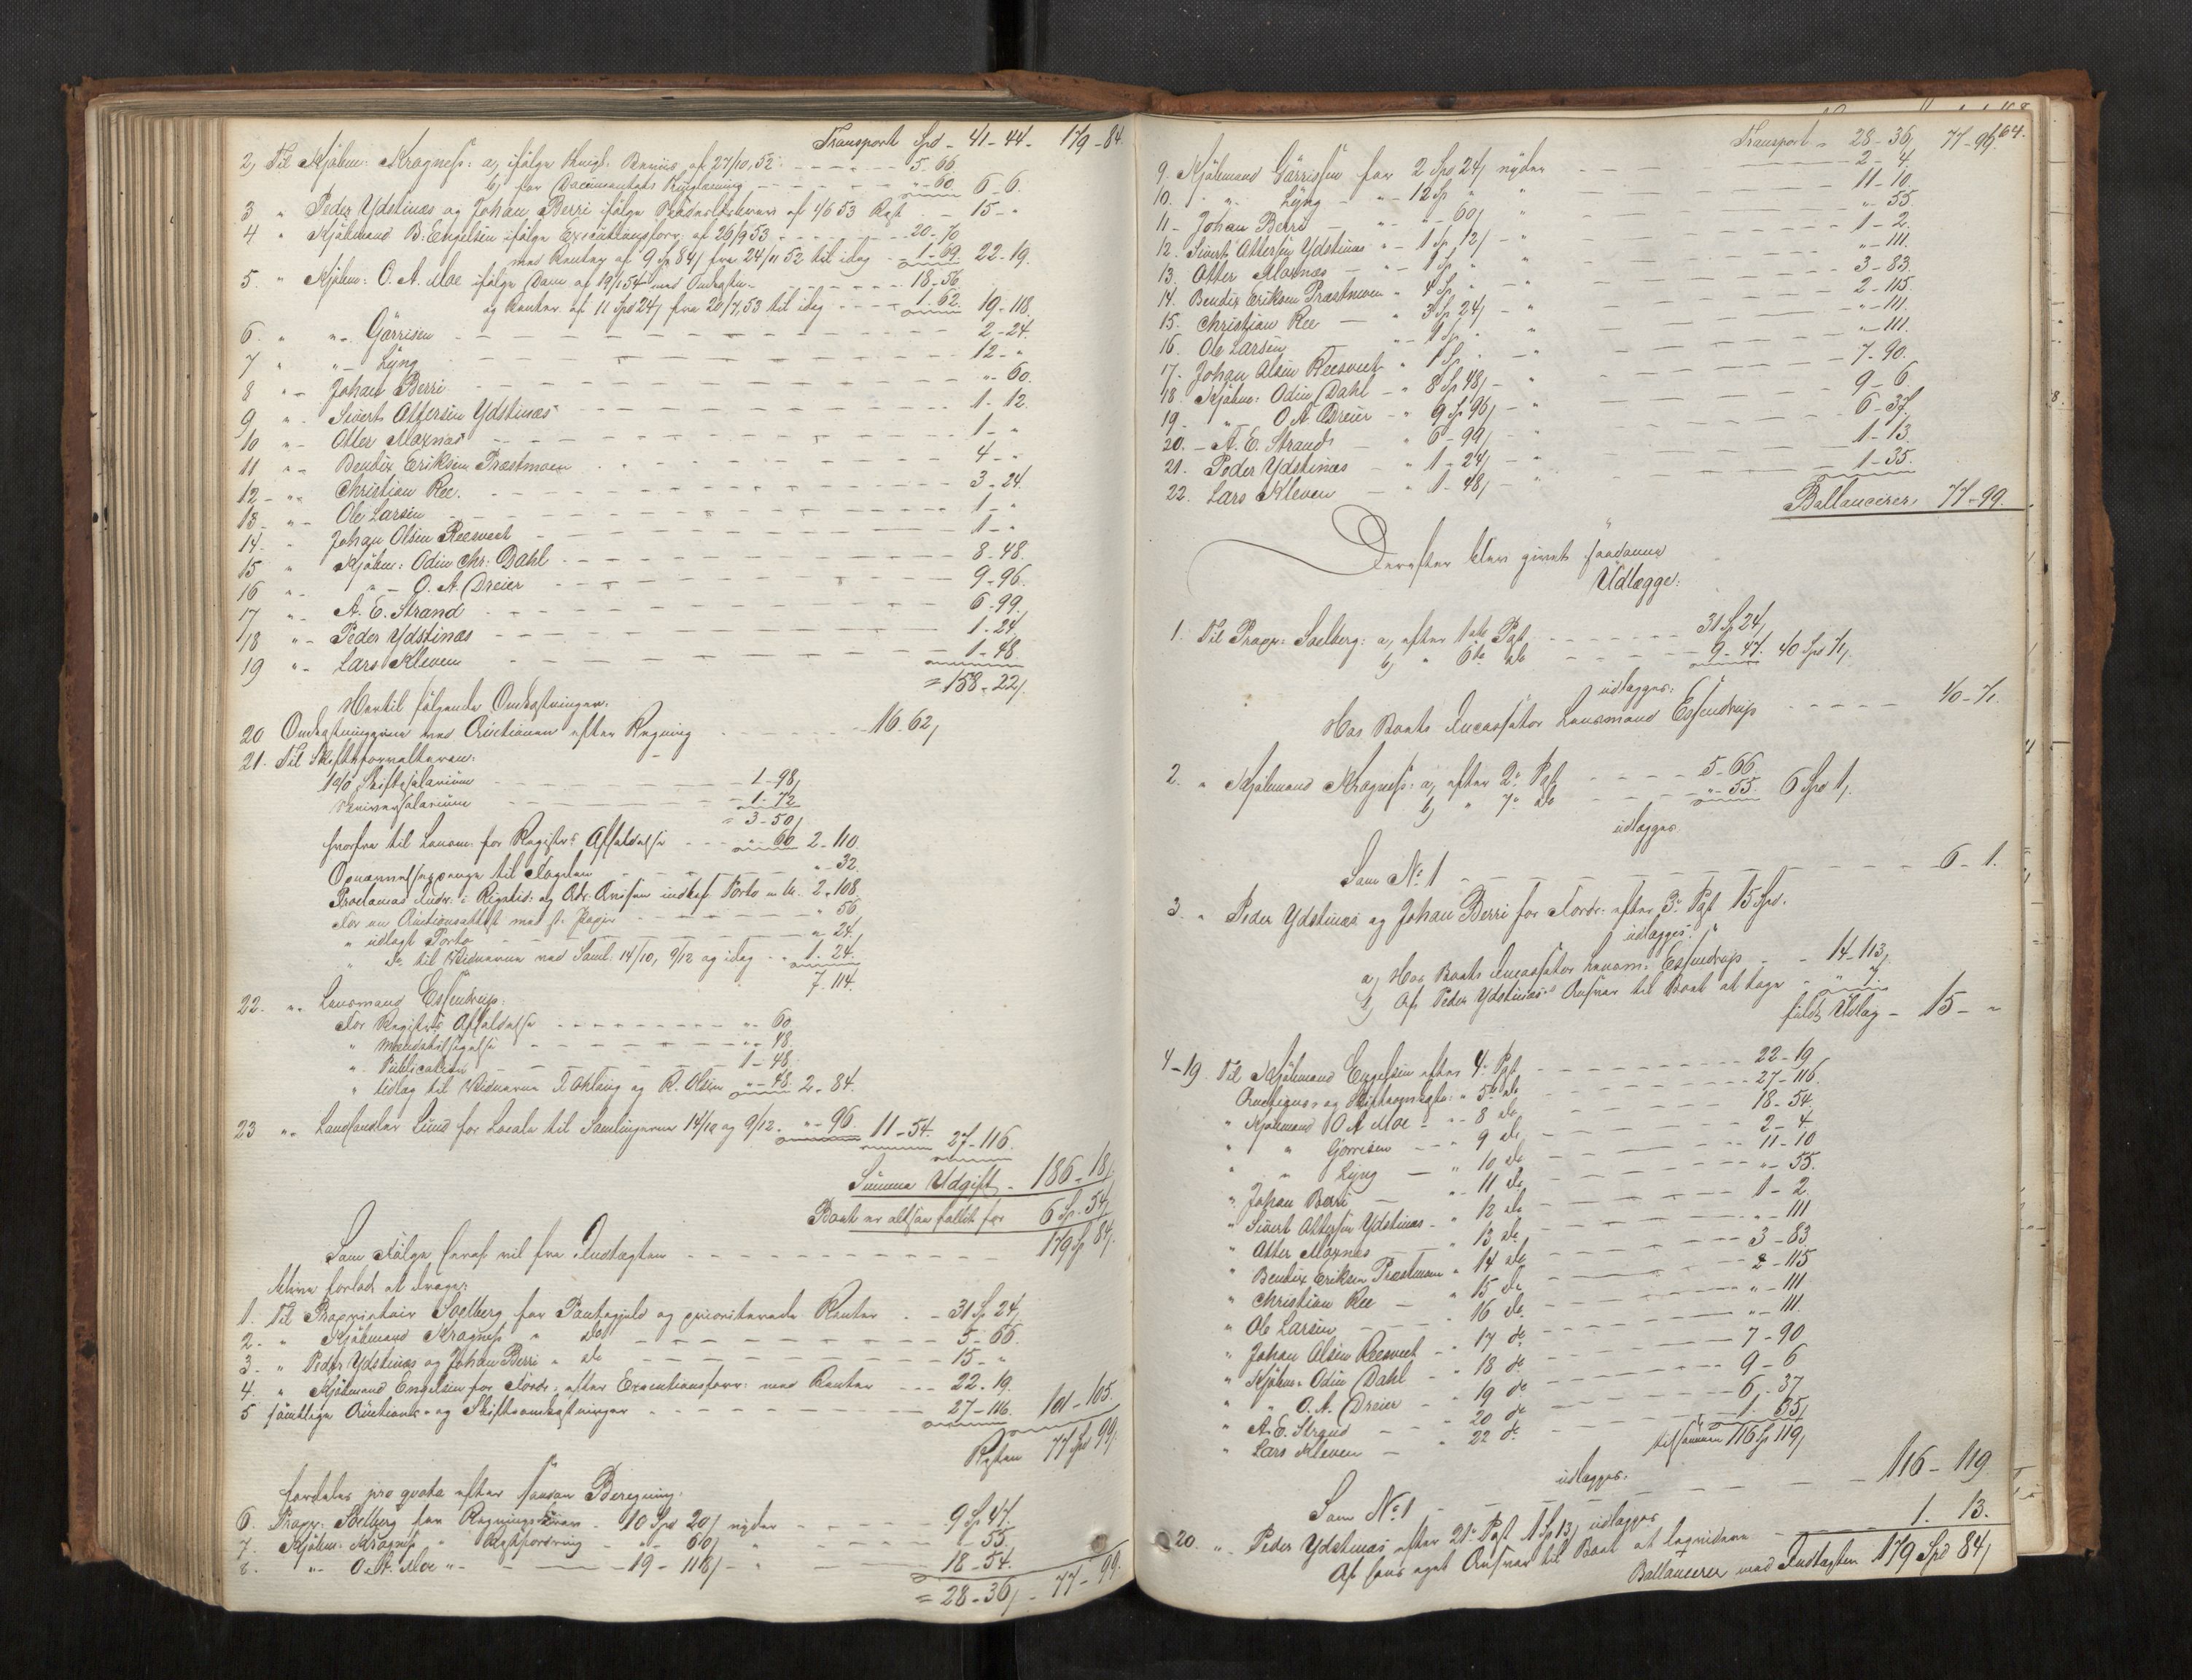 Transport Spd - 41-44 - 179-84.
2, Til Kjøbm: Kragness: a, ifølge Beviis af 27/10,52. - - - 5-66.
b, for Documentets Thinglæsning - - - "-60. 6-6.
3 " Peder Ydstinæs og Johan Berri ifølge af 4/6 53 Pgt - 15-"
4 " Kjøbmand B. Engelsen ifølge Executionsforr: af 26/9 53 - - - 20-70
med Renter af 9 Sp 84/ fra 24/11 52 til idag - 1-69. 22-19.
5. " Kjøbm: O. A. Moe ifølge Dom af 19/1 54 med Omkostn - - - 18-56.
og Renter af 11 Spd 24/ fra 20/7,53 til idag - - - 1-62. 19-118.
6. " "- Gärrisen - - - 2-24.
7 " "- Lyng - - - 12-"
8 "- Johan Berri - - - "-60.
9 "- Sivert Attersen Ydstinæs - - - 1-12.
10 "- Otter Moxnæs - - - 1-"
11 "- Bendix Eriksen Præstmoen - - - 4-"
12 - "- Christian Ree. - - - 3-24.
13 - "- Ole Larsen - - - 1-"
14. " Johan Olsen Reesveet - - - 1-"
15 " Kjøbm: Odin Chr: Dahl - - - 8-48.
16 "- " - O. A. Dreier - - - 9-96.
17 "- A. E. Strand - - - 6-99.
18 "- Peder Ydstinæs - - - 1-24.
19 "- Lars Kleven - - - 1-48
= 158-22/.
Hertil følgende Omkostninger:
20 Omkostningerne ved Auctionen efter Regning - - - 16-62/
21. Til Skifteforvalteren:
1 % Skiftesalarium - - - 1-98/
Skriversalarium - - - 1-72
= 3-50/
hvorfra til Lensm: for Registr: Afholdelse - - - "-60 2-110.
Opnævnelsespenge til Fogden - - - "-32.
Proclamas Indr: i Rigstid: og Adr: Avisen indbef. Porto m. v. 2-108.
For en Auctionsattest med st. Papir - - - " 56
" udlagt Porto - - - " 24.
" Do til Vidnerne ved Saml: 14/10, 9/12 og idag - - 1-24.
7-114.
22. "- Lensmand Essendrop:
For Registr: Afholdelse - - - "-60
" Mændstilsigelse - - - "-48
" Publication - - - 1-48.
" Udlæg til Vidnerne J. Ahling og R. Olsen "-48. 2-84.
23 "- Landhandler Lund for Locale til Samlingerne 14/10 og 9/12. "-96. 11-54. 27-116.
Summa Udgift - 186-18/.
Boet er altsaa fallit for 6 Sp. 54/
Som Følge heraf vil fra Indtægten - - - 179 Sp 84/.
blive forlods at drage:
1. Til Proprietair Soelberg for Pantegjeld og prioriterede Renter - - 31 Sp 24/
2. " Kjøbmand Kragness " do - - - 5-66.
3 - " Peder Ydstinæs og Johan Berri " do - - - 15-"
4. " Kjøbmand Engelsen for Fordr: efter Executionsforr: med Renter - - - 22-19.
5 samtlige Auctions- og Skifteomkostninger - - - 27-116. 101-105.
Resten 77 Spd 99/.
fordeles pro qvota efter saadan Beregning:
6. Propr: Soelberg for Regningskrav - 10 Spd 20/ nyder - - - 9 Sp 47.
7. Kjøbm: Kragness " Restfordring - "- 60/ " - - - "-55.
8. "- O. A. Moe "- - - 19-118/ - " - - - 18-54.
= 28-36/ - 77-99.
164.
Transport - 28-36, 77-99
9. Kjøbmand Gärrissen for 2 Spd 24/ nyder - - - 2-4.
10. " Lyng - "- 12 Sp " " - - - 11-10.
11 - Johan Berri - "- "- 60/ " - - - "-55.
12. Sivert Attersen Ydstinæs "- 1 Sp 12/ - " - - - 1-2.
13. Otter Moxnæs - "- 1 Sp " " - - - "-111.
14. Bendix Eriksen Præstmoen " 4 Sp " - " - - - 3-83.
15. Christian Ree - " 3 Sp 24/ - " - - - 2-115.
16. Ole Larsen - "- 1 Sp " " - - - "-111.
17. Johan Olsen Reesveet - " 1 Sp " - " - - - "-111.
18. Kjøbm: Odin Dahl - " 8 Sp 48/ - " - - - 7-90.
19 - " O A Dreier - " 9 Sp 96/ - " - - - 9-6.
20. - A. E. Strand - " 6-99/ - " - - - 6-37.
21. Peder Ydstinæs - " 1-24/ - " - - - 1-13.
22. Lars Kleven - " 1-48/ - " - - - 1-35.
Ballancerer 77-99.
Derefter blev givet saadanne
Udlægge:
1. Til Propr: Soelberg: a, efter 1ste Pgt - - - 31 Sp 24/
b, " 6te do - - - 9-47. 40 Spd 71/.
udlægges:
Hos Boets Incassator Lensmand Essendrop - - - 40-71.
2. " Kjøbmand Kragness: a, efter 2. Pgt - - - 5-66
b, " 7. do - - - "-55. 6 Spd 1/.
udlægges
Som No 1 - - - 6-1.
3. " Peder Ydstinæs og Johan Berri for Fordr: efter 3. Pgt 15 Spd.
udlægges:
a, Hos Boets Incassator Lensm: Essendrop - - 14-113/
b, Af Peder Ydstinæs's Ansvar til Boet at tage - " 7.
fuldt Udlæg - 15-"
4-19. Til Kjøbmand Engelsen efter 4. Pgt - - - 22-19
Auctions- og Skifteomkostn: " 5te do - - - 27-116.
" Kjøbmand O A Moe - " 8 do - - - 18-54.
" " Görrisen - " 9 do - - - 2-4
" " Lyng - " 10 do - - - 11-10
" Johan Berri - " 11 do - - - "-55.
" Sivert Attersen Ydstinæs - " 12 do - - - 1-2.
" Atter Moxnæs - " 13 do - - - "-111
" Bendix Eriksen Præstmoen " 14 do - - - 3-83
" Christian Ree - " 15 do - - - 2-115
" Ole Larsen - " 16 do - - - "-111
" Johan Olsen Reesveet - " 17 do - - - "-111.
" Kjøbm: Odin Dahl - " 18 do - - - 7-90
" " O. A. Dreier - " 19 do - - - 9-6
" A. E. Strand - " 20 do - - - 6-37
" Lars Kleven - " 22 do - - - 1-35/
tilsammen 116 Sp 119/
udlægges:
Som No 1 - - - 116-119
20. " Peder Ydstinæs efter 21. Pgt 1 Sp 13/ udlægges
Af hans eget Ansvar til Boet at liqvidere - - - 1. 13.
Ballancerer med Indtægten 179 Spd 84/